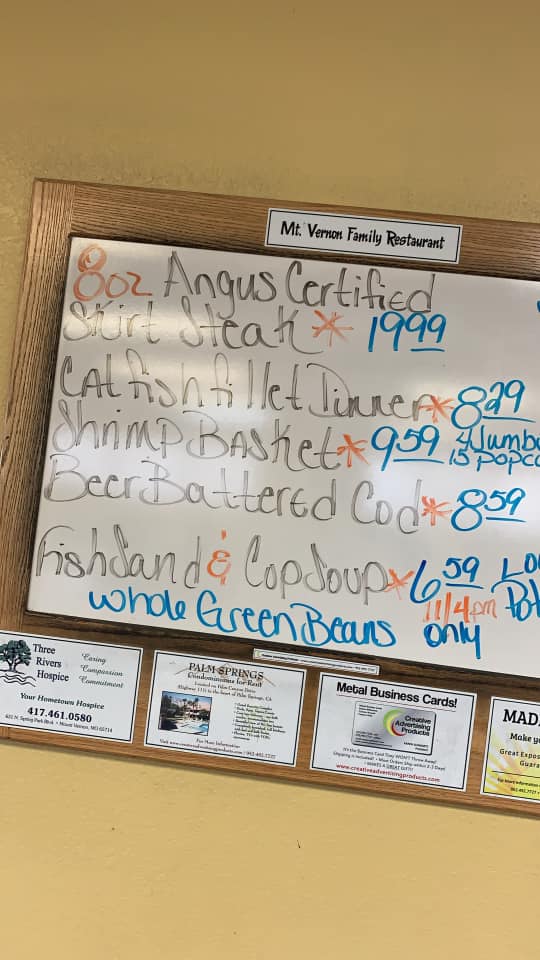 Mt. Vernon Family Restaurant
8oz Angus Certified
Skirt Steak * 19 99
Catfish fillet Dinner * 8 29
Shrimp Basket * 9 59 4 Jumbo
15 popco
Beer Battered Cod * 8 59
Fish Sand & Cop Soup * 6 59
11/4pm
Whole Green Beans only
Three Rivers Hospice
Caring
Compassion
Commitment
Your Hometown Hospice
417.461.0580
PALM SPRINGS
Condominiums for Rent
For More Information
Metal Business Cards!
Creative
Advertising
Products
www.creativeadvertisingproducts.com
MAD
Make yo
Great Expos
Guara